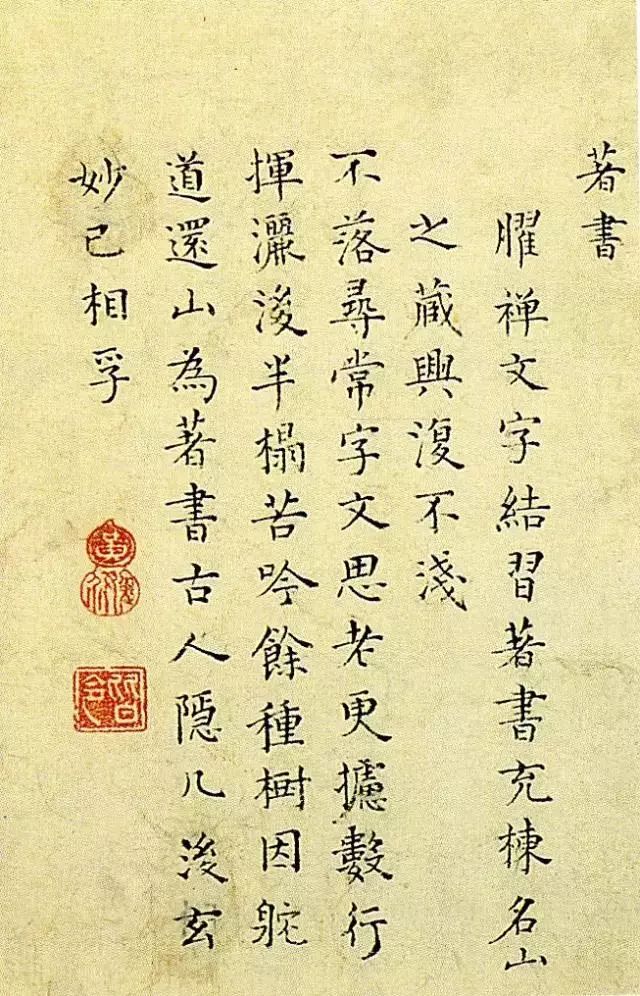 著書
臞禅文字結習著書充棟名山
之蔵興復不淺
不落尋常字文思老更攄數行
揮灑後半榻苦吟餘種樹因駝
道還山為著書古人隱几後玄
妙已相孚